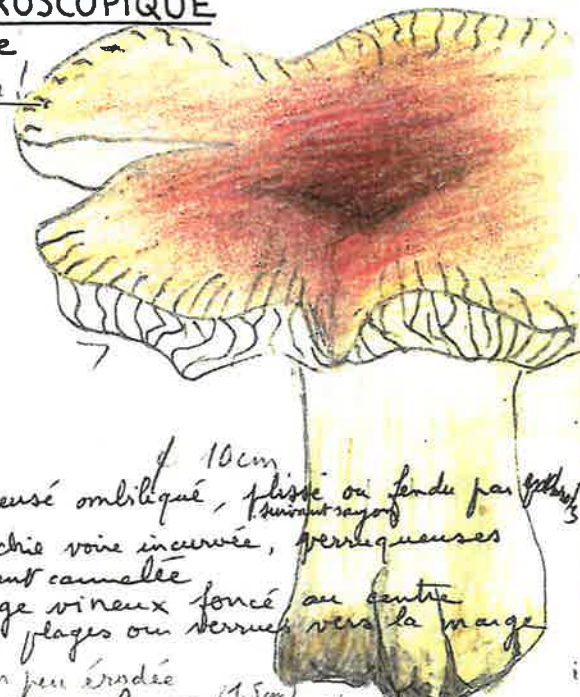 ROSCOPIQUE
e
!
ø 10cm
eusé ombiliqué, plissé ou fendu par
suivant rayon
chie voire incurvée, verruqueuses
ent cannelée
ge vineux foncé au centre
plages ou verrues vers la marge
n peu érodée